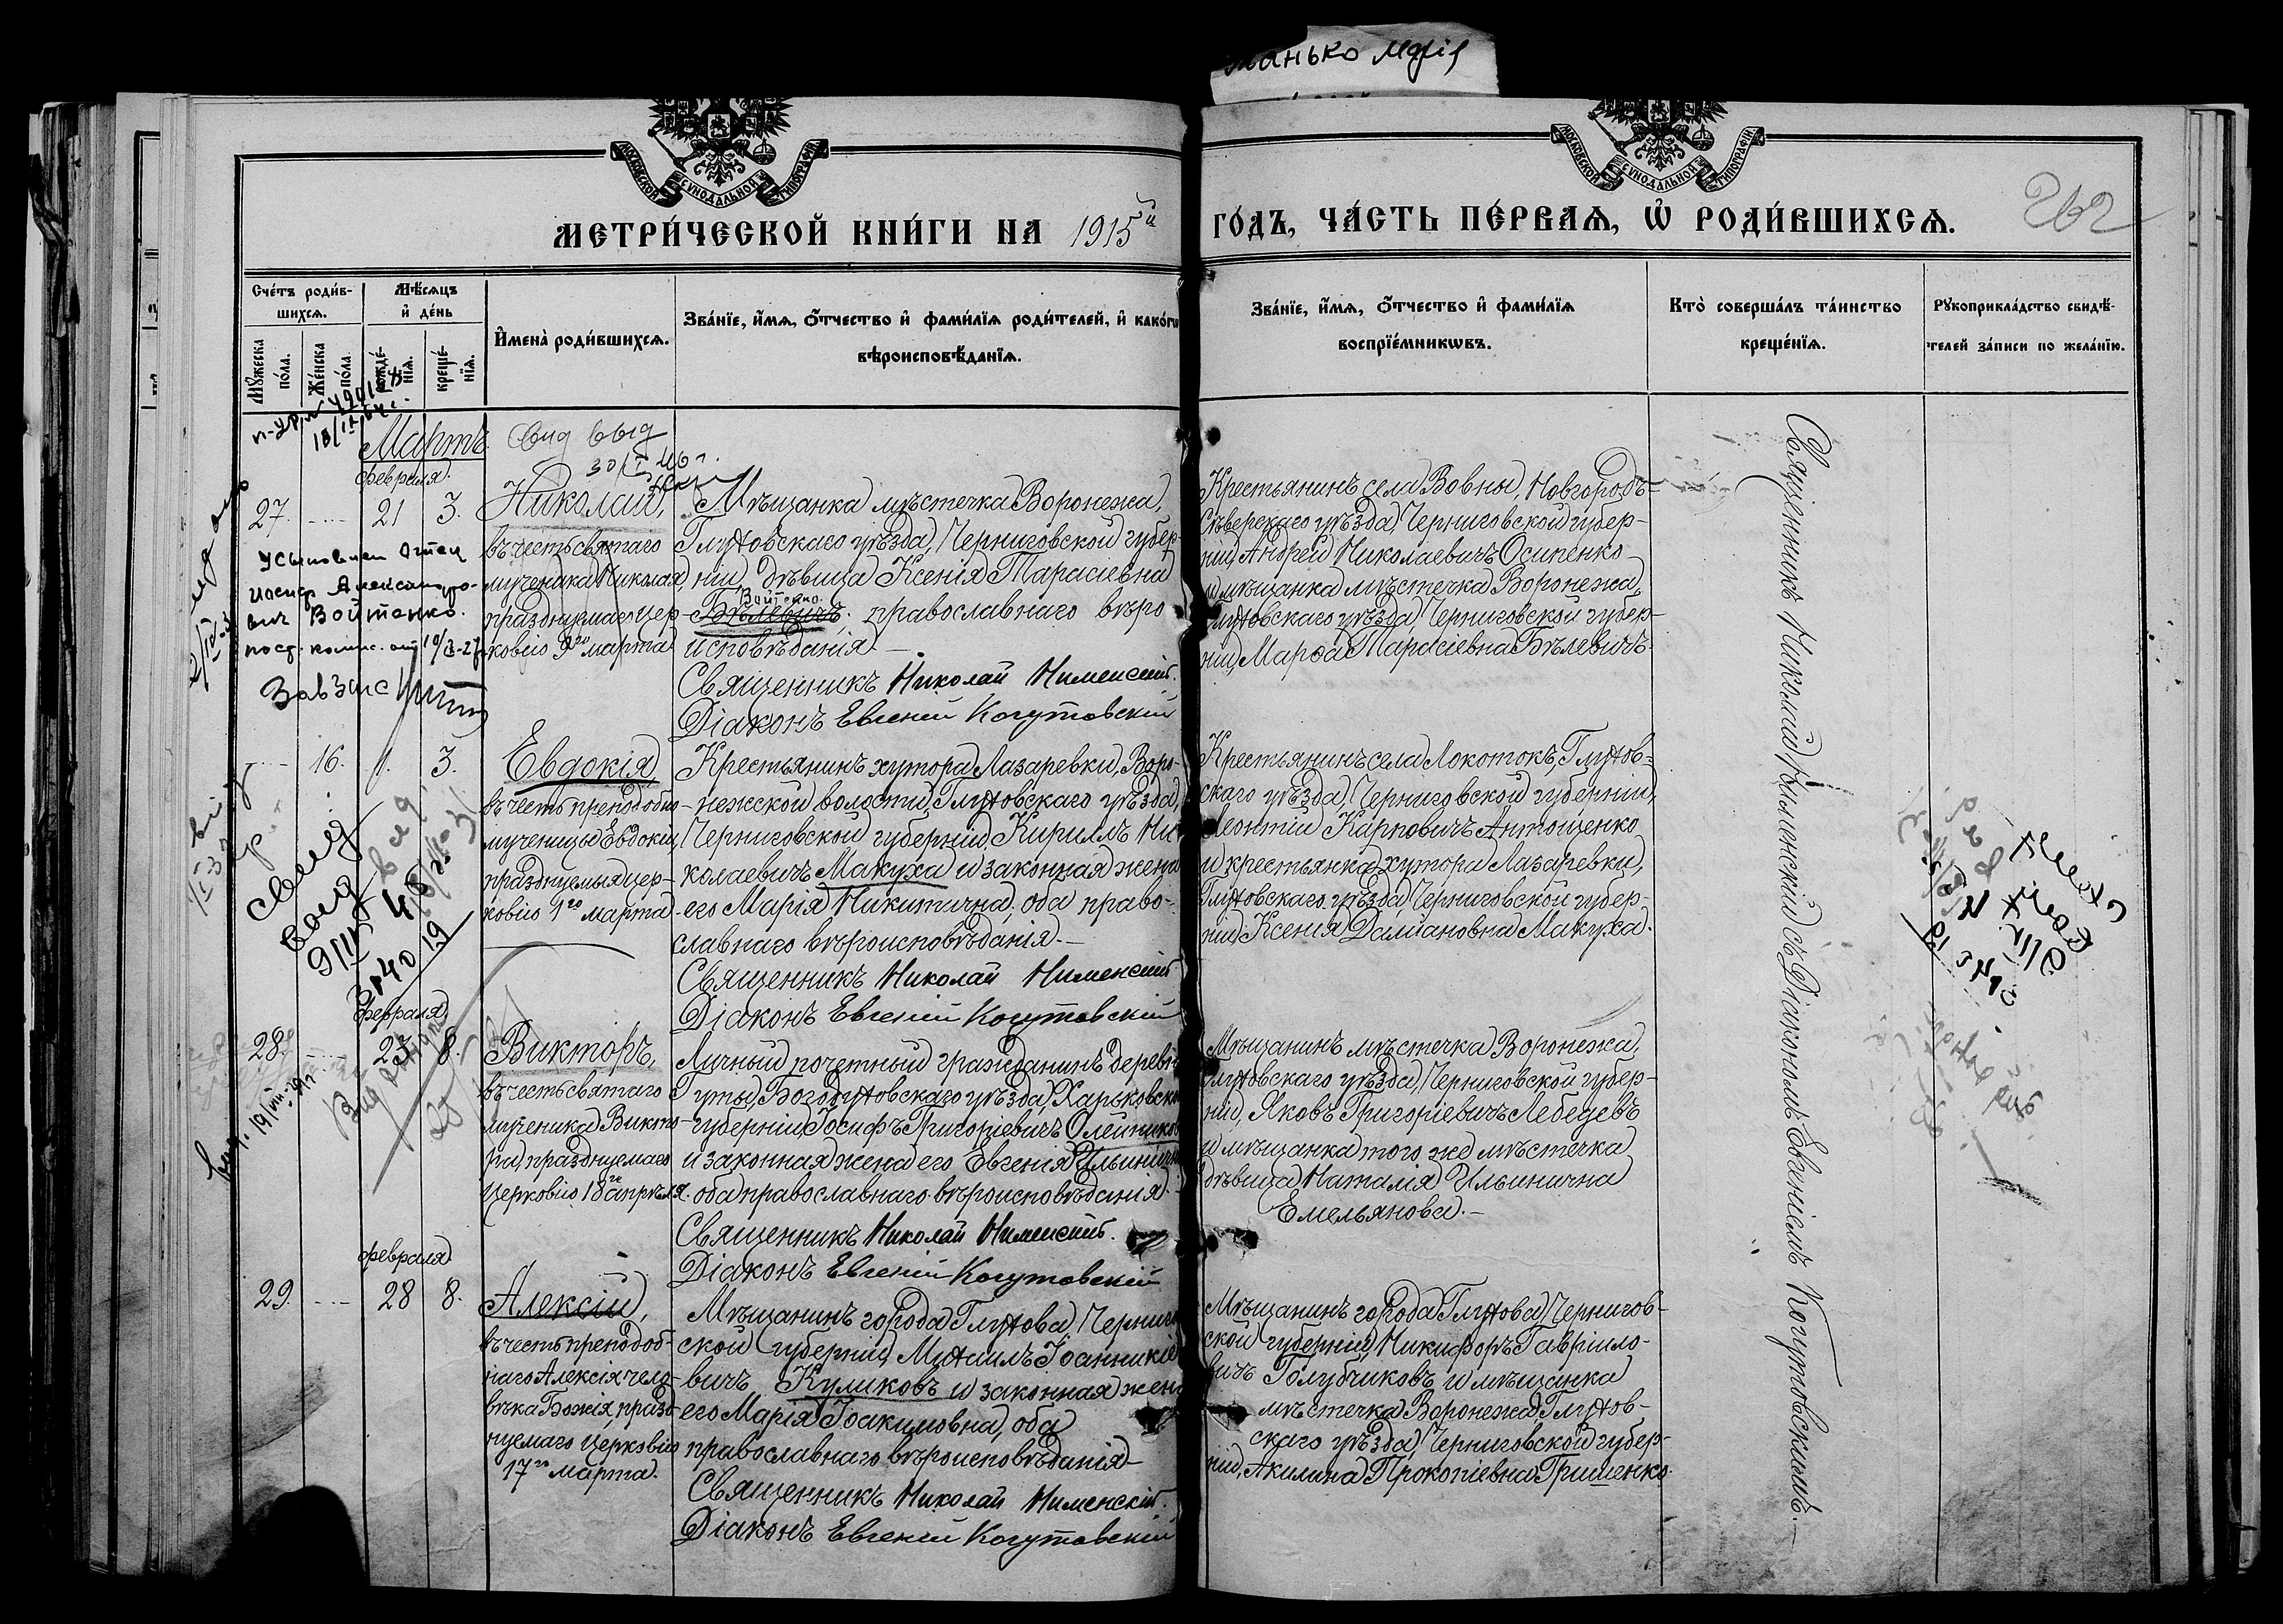 манько Марія
МОСКОВСКОЙ СУНОДАЛЬНОЙ ТИПОГРАФІИ
МОСКОВСКОЙ СУНОДАЛЬНОЙ ТИПОГРАФІИ
МЕТРИ́ЧЕСКОЙ КНИ́ГИ НА 1915й ГО́ДЪ, ЧА́СТЬ ПЕ́РВАЯ, Ѡ РОДИ́ВШИХСЯ.
262
Сче́тъ роди́вшихся.
Му́жеска по́ла.
Же́нска по́ла.
Мѣ́сяцъ и де́нь
рожде́нія.
креще́нія.
Имена̀ роди́вшихся.
Зва́ніе, и́мя, о́тчество и фами́лія роди́телей, и како́гѡ
вѣроисповѣ́данія.
Зва́ніе, и́мя, о́тчество и фами́лія
воспріе́мникѡвъ.
Кто̀ соверша́лъ та́инство
креще́нія.
Рукоприкла́дство свидѣ́-
телей за́писи по жела́нію.
Мартъ
Свид выд
30/I 46 г.
февраля.
27. 21 3.
Николай,
въ честь святаго
мученика Николая,
празднуемаго цер-
ковію 9го марта
Усыновлен отец
Иосиф Александро-
вич Войтенко.
Мѣщанка мѣстечка Воронежа,
Глуховскаго уѣзда, Черниговской губер-
ніи, дѣвица Ксенія Тарасіевна
Войтенко.
Бѣлевичъ, православнаго вѣро
исповѣданія.
Священникъ Николай Нименскій.
Діаконъ Евгеній Когутовскій
Крестьянинъ села Вовны, Новгородъ-
Сѣверскаго уѣзда, Черниговской губер-
ніи, Андрей Николаевичъ Осипенко
и мѣщанка мѣстечка Воронежа,
Глуховскаго уѣзда, Черниговской губер-
ніи, Марѳа Тарасіевна Бѣлевичъ.
16. 1. 3.
Евдокія
въ честь преподобно-
мученицы Евдокіи,
празднуемыя цер-
ковію 1го марта
Крестьянинъ хутора Лазаревки, Воро-
нежской волости, Глуховскаго уѣзда,
Черниговской губерніи, Кириллъ Ни-
колаевичъ Макуха и законная жена
его Марія Никитична, оба право-
славнаго вѣроисповѣданія.
Священникъ Николай Нименскій
Діаконъ Евгеній Когутовскій
Крестьянинъ села Локотокъ, Глухов-
скаго уѣзда, Черниговской губерніи,
Леонтій Карповичъ Антощенко
и крестьянка хутора Лазаревки,
Глуховскаго уѣзда, Черниговской губер-
ніи, Ксенія Даміановна Макуха.
февраля
28. 23 8.
Викторъ,
въ честь святаго
мученика Викто-
ра, празднуемаго
Церковію 18го апрѣля.
Личный почетный гражданинъ деревни
Гуты, Богодуховскаго уѣзда, Харьковской
губерніи, Іосифъ Григоріевичъ Олейников
и законная жена его Евгенія Ильинична
оба православнаго вѣроисповѣданія.
Священникъ Николай Нименскій.
Діаконъ Евгеній Когутовскій
Мѣщанинъ мѣстечка Воронежа,
Глуховскаго уѣзда, Черниговской губер-
ніи, Яковъ Григоріевичъ Лебедевъ
и мѣщанка того же мѣстечка
дѣвица Наталія Ильинична
Емельянова.
февраля
29. 28 8.
Алексій,
въ честь преподоб-
наго Алексія чело-
вѣка Божія, празд-
нуемаго Церковію
17го марта.
Мѣщанинъ города Глухова, Чернигов
ской губерніи, Михаилъ Іоанникіе
вичъ Куликовъ и законная жена
его Марія Іоакимовна, оба
православнаго вѣроисповѣданія
Священникъ Николай Нименскій.
Діаконъ Евгеній Когутовскій
Мѣщанинъ города Глухова, Чернигов-
ской губерніи, Никифоръ Гавріило-
вичъ Голубчиковъ и мѣщанка
мѣстечка Воронежа, Глухов-
скаго уѣзда, Черниговской губер-
ніи, Акилина Прокопіевна Гришенко.
Священникъ Николай Нименскій съ Діакономъ Евгеніемъ Когутовскимъ.